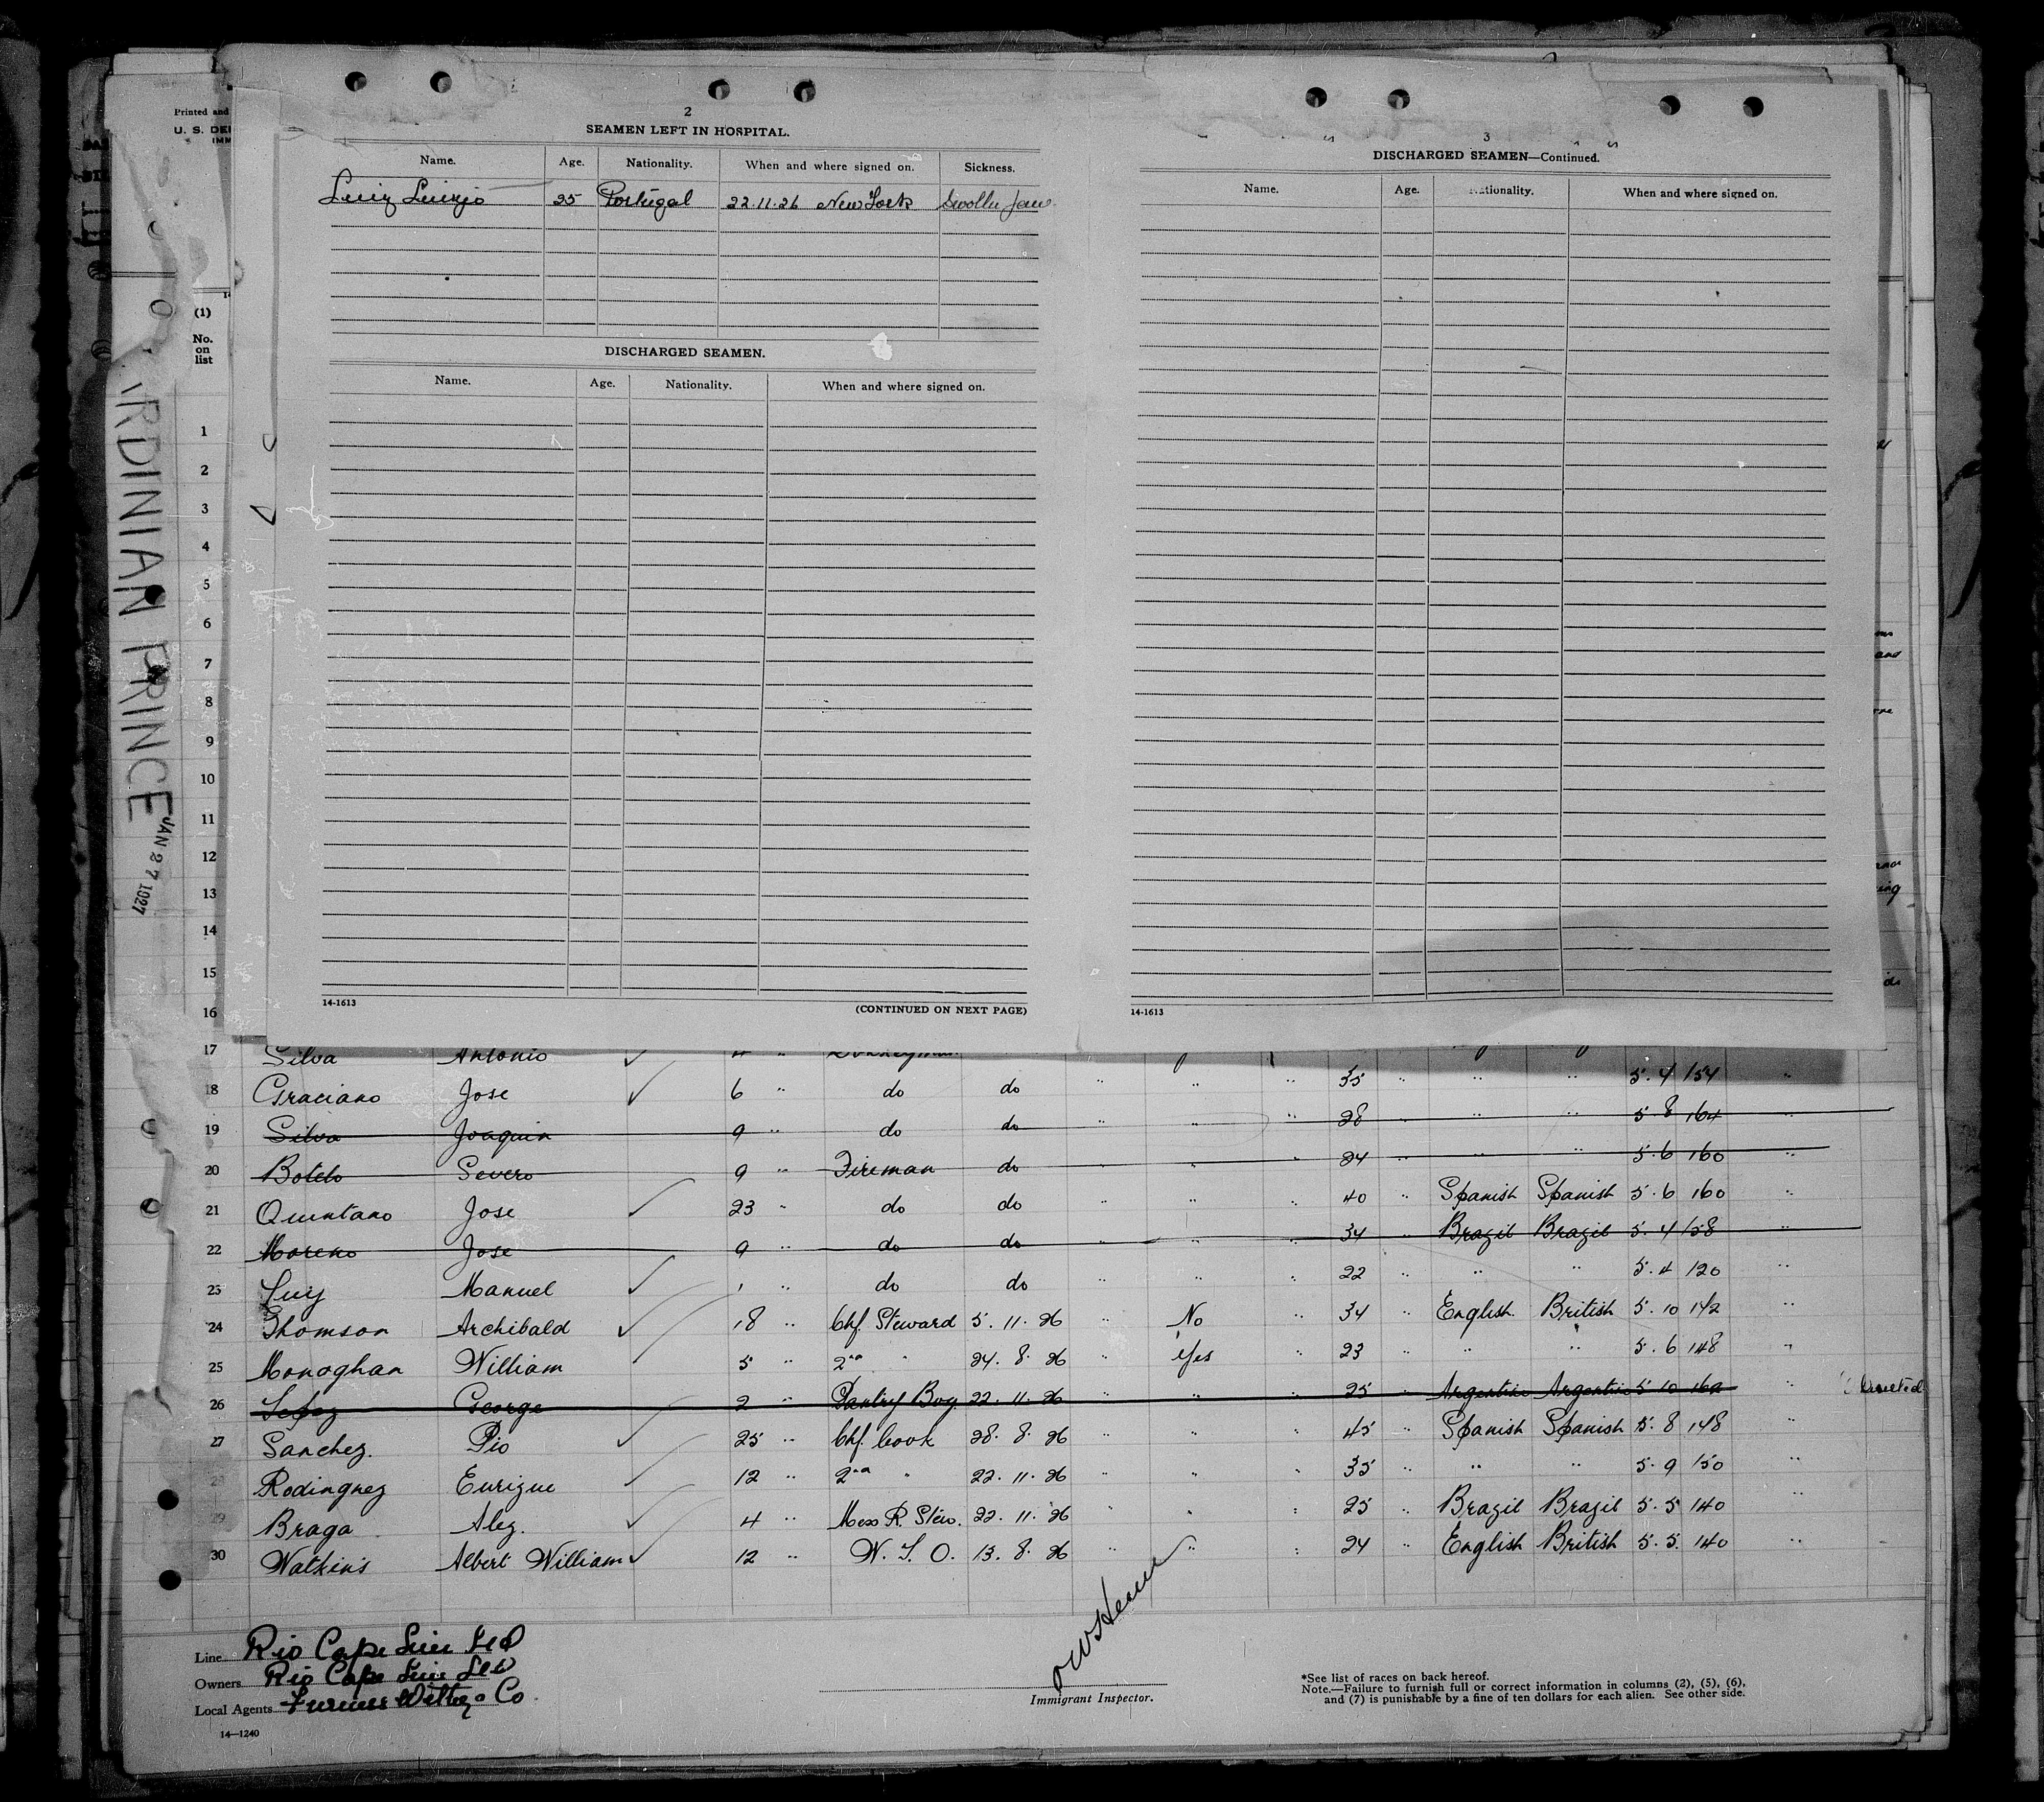 Printed and
U. S. DE
IMM
(1)
No.
on
list
RDINIAN PRINCE
JAN 27 1927
2
SEAMEN LEFT IN HOSPITAL.
Name. Age. Nationality. When and where signed on. Sickness.
25 Portugal 22.11.26 New York
DISCHARGED SEAMEN.
Name. Age. Nationality. When and where signed on.
14-1613 (CONTINUED ON NEXT PAGE)
3
DISCHARGED SEAMEN—Continued.
Name. Age. ationality. When and where signed on.
14-1613
1
2
3
4
5
6
7
8
9
10
11
12
13
14
15
16
17 Silva Antonio ✓ 4 "
18 Graciano Jose ✓ 6 " do do " " " 35 " " " 5.4 154 "
19 Silva Joaquin 9 " do do " " " 28 " " 5.8 164 "
20 Botelo Severo 9 " Fireman do " " " 24 " " " 5.6 160 "
21 Quintano Jose ✓ 23 " do do " " " 40 " Spanish Spanish 5.6 160 "
22 Moreno Jose 9 " do do " " " 34 " Brazil Brazil 5.4 158 "
23 Manuel ✓ 1 " do do " " " 22 " " " 5.4 120 "
24 Thomson Archibald ✓ 18 " Chf. Steward 5.11.26 " No " 34 " English British 5.10 142 "
25 Monoghan William ✓ 5 " 2nd " 24.8.26 " Yes " 23 " " " 5.6 148 "
26 George 2 " Pantry Boy 22.11.26 " " 25 " Argentine Argentine 5.10 162 " Deserted
27 Sanchez. Pio ✓ 25 " Chf. Cook 28.8.26 " " " 45 " Spanish Spanish 5.8 148 "
28 Rodinquez Eurique ✓ 12 " 2nd " 22.11.26 " " " 35 " " " 5.9 150 "
29 Braga Alez. ✓ 4 " Mess R. Stew. 22.11.26 " " " 25 " Brazil Brazil 5.5 140 "
30 Watkins Albert William ✓ 12 " W. T. O. 13.8.26 " " " 24 " English British 5.5. 140 "
Line Rio Cape Line Ltd
Owners Rio Cape Line Ltd
Local Agents Furness Withy & Co.
14—1240
Immigrant Inspector.
*See list of races on back hereof.
Note.—Failure to furnish full or correct information in columns (2), (5), (6),
and (7) is punishable by a fine of ten dollars for each alien. See other side.